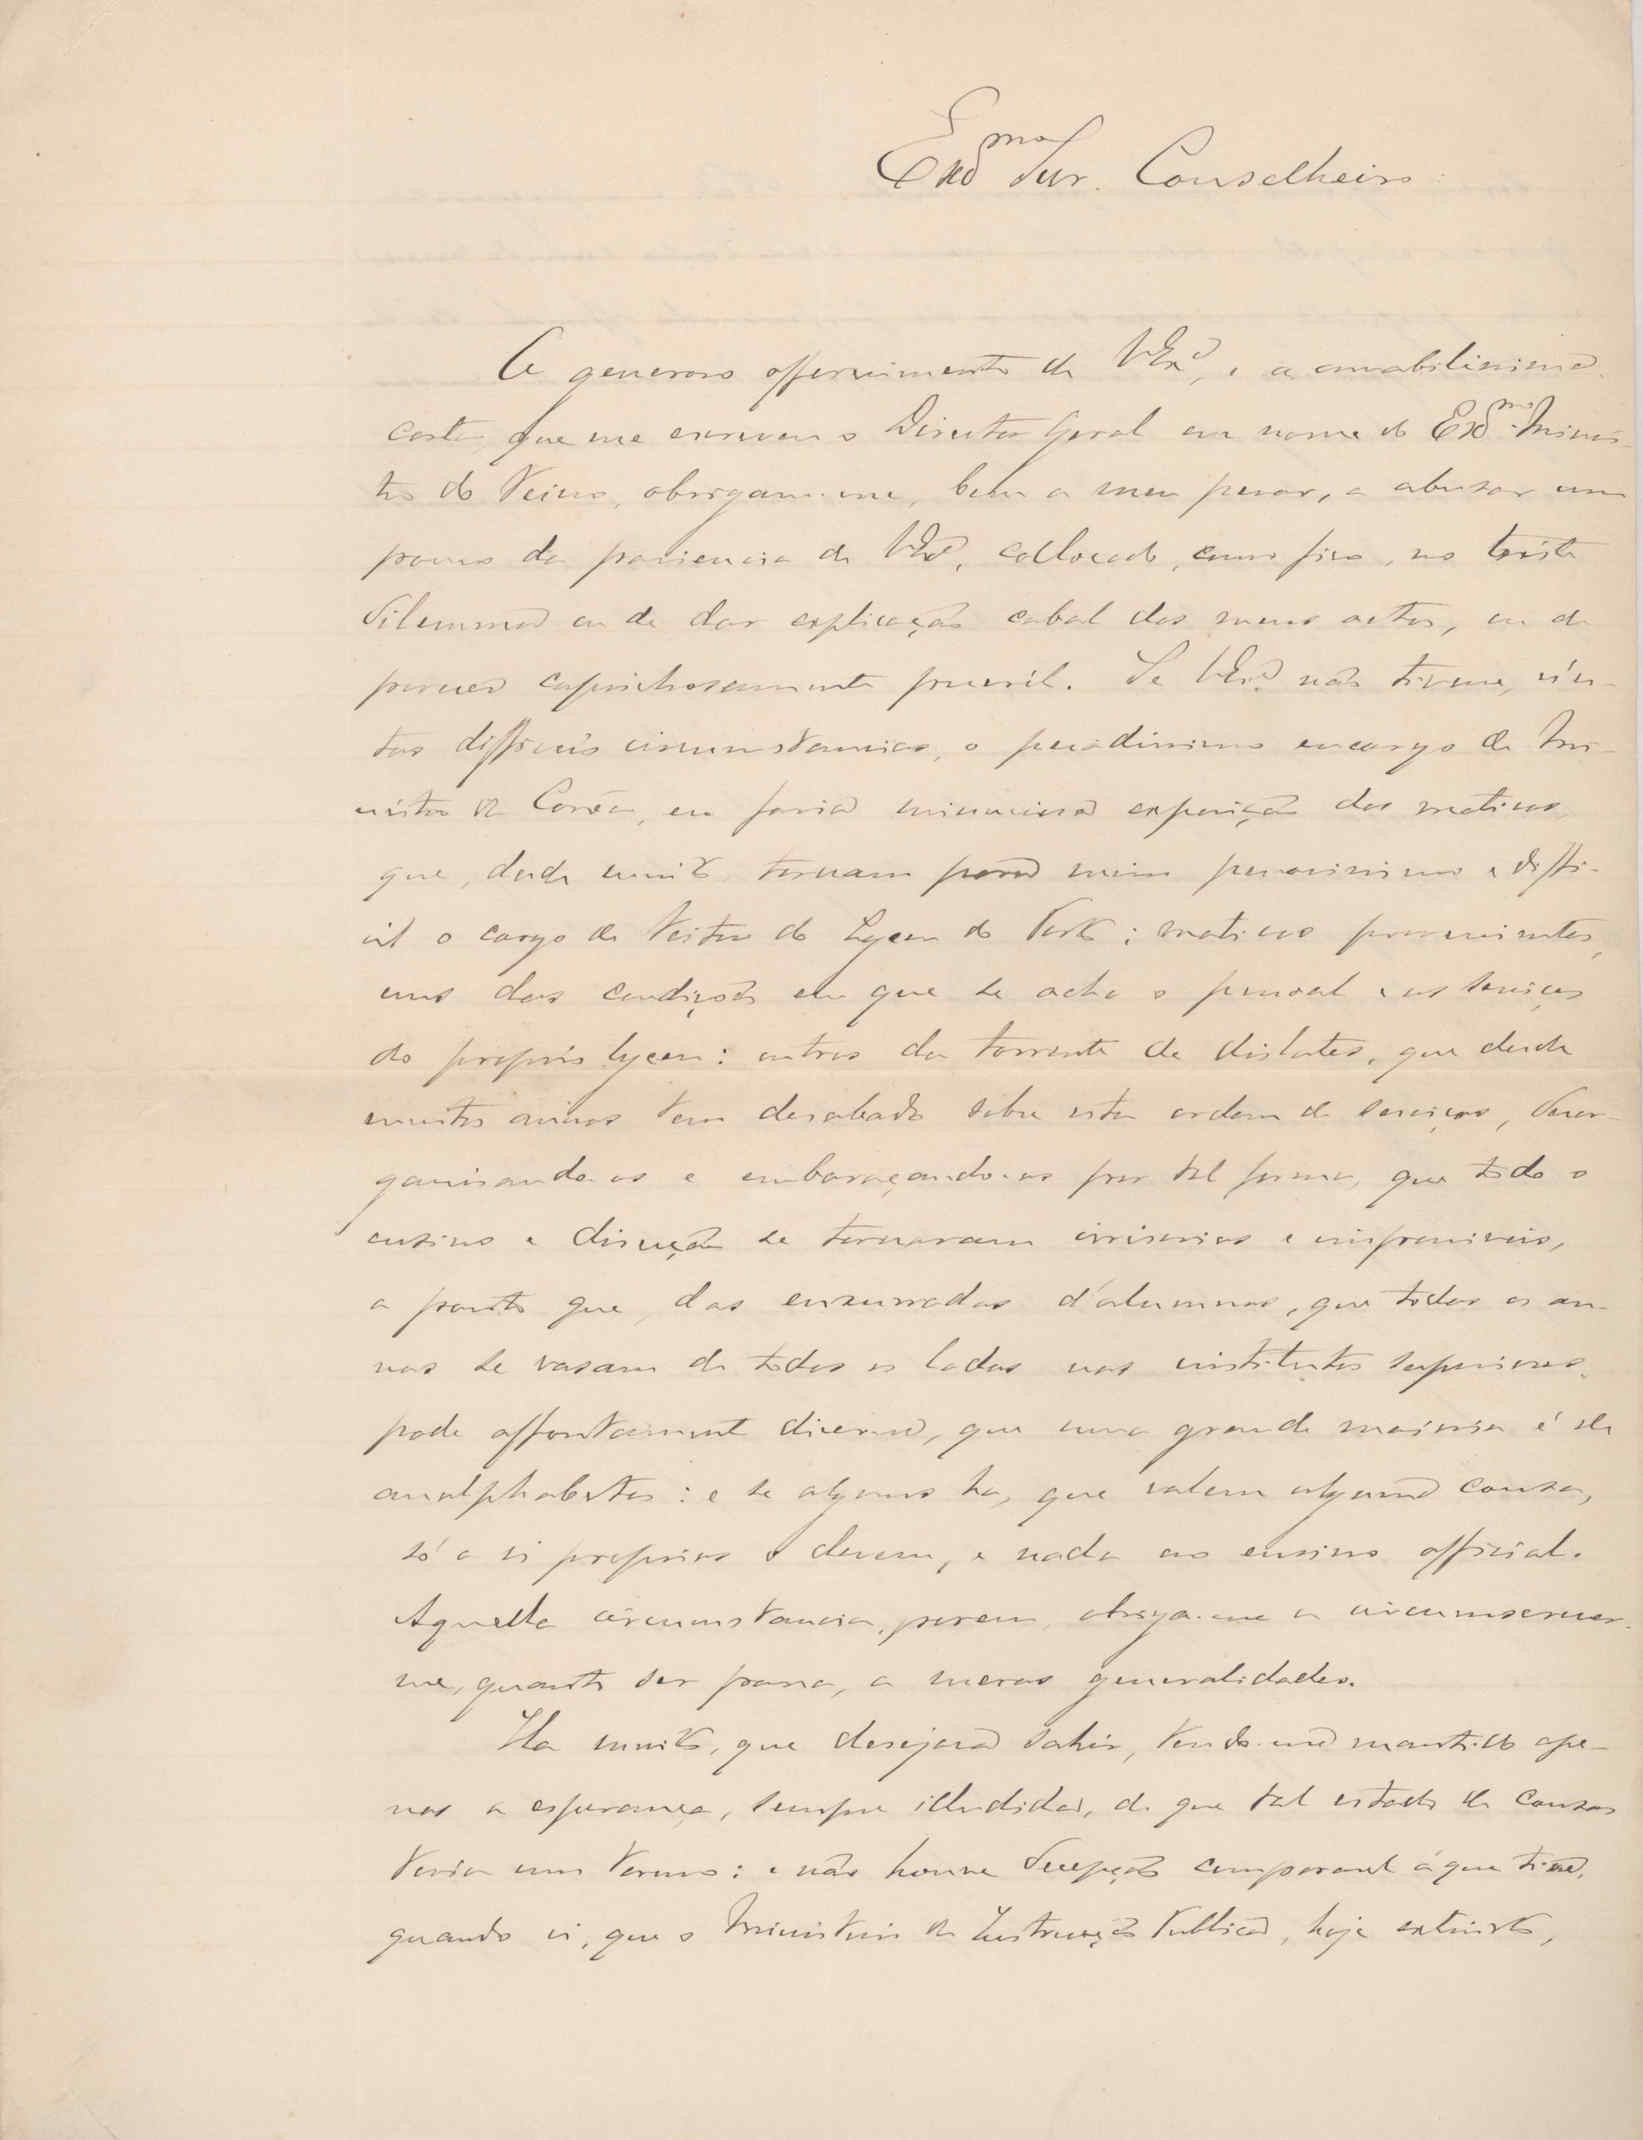 Exmo Snr. Conselheiro
O generoso offerecimento de V. Exa, e a amabilissima
carta que me escreveu o Director Geral em nome do Exmo Minis-
tro do Reino, obrigam-me, bem a meu pesar, a abusar um
pouco da paciencia de V. Exa, collocado, como fico, no triste
dilemma ou de dar explicação cabal dos meus actos, ou de
parecer caprichosamente pueril. Se V. Exa não tivesse, n'es-
tas difficeis circumstancias, o pesadissimo encargo de Mi-
nistro da Corôa, eu faria minuciosa exposição dos motivos,
que, desde muito, tornam para mim penosissimo e diffi-
cil o cargo de Reitor do Lyceu do Porto; motivos provenientes,
uns das condições em que se acha o pessoal e os serviços
do proprio lyceu: outros da torrente de dislates, que desde
muitos annos tem desabado sobre esta ordem de serviços, desor-
ganisando-os e embaraçando-os por tal forma, que todo o
ensino e direcção se tornaram irrisorios e impossiveis,
a ponto que, das enxurradas d'alumnos, que todos os an-
nos se vasam de todos os lados nos institutos superiores,
pode affoutamente dizer-se, que uma grande maioria é de
analphabetos: e se alguns ha, que valem alguma cousa,
só a si proprios o devem, e nada ao ensino official.
Aquella circumstancia, porem, obriga-me a circumscrever-
me, quanto ser possa, a meras generalidades.
Ha muito, que desejava sahir, tendo-me mantido ape-
nas a esperança, sempre illudida, de que tal estado de cousas
teria um termo: e não houve decepção comparavel á que tive,
quando vi, que o Ministerio da Instrucção Publica, hoje extincto,